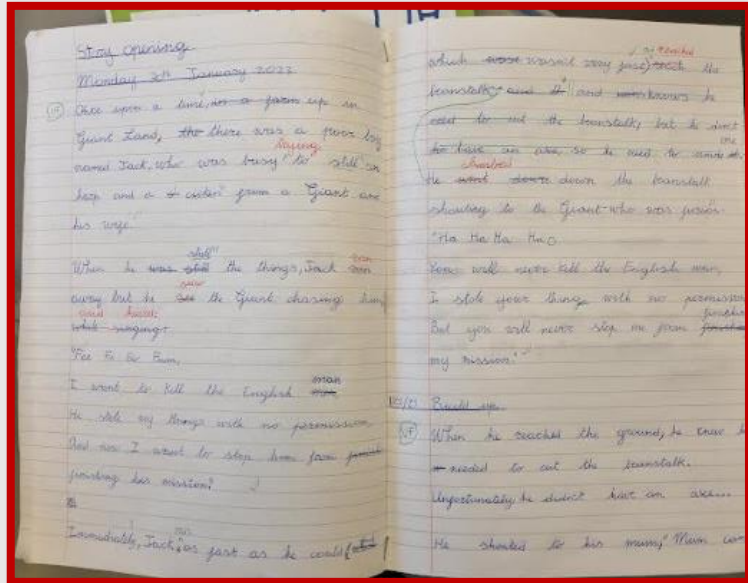 Story opening
Monday 3rd January 2022
Once upon a time, in a farm up in
Giant Land, there was a poor boy
named Jack, who was busy trying to still an
harp and a from a Giant and
his wife.
When he was still stole the things, Jack ran
away but he saw the Giant chasing him
and
while singing
"Fee Fi Fo Fum,
I want to kill the English man
He stole my things with no permission
And now I want to stop him from
finishing his mission!"
Immediately, Jack ran as fast as he could (
which wasn't very fast) reached the
beanstalk and and knows he
need to cut the beanstalk, but he
have an axe so he need to one
He went down the beanstalk
shouting to the Giant who was
"Ha Ha Ha Ha
You will never kill the English man,
I stole your things with no permission
But you will never stop me from
my mission!"
Build up
VF When he reached the ground, he knew he
needed to cut the beanstalk.
Unfortunately, he didn't have an axe...
He shouted to his mum, "Mum can